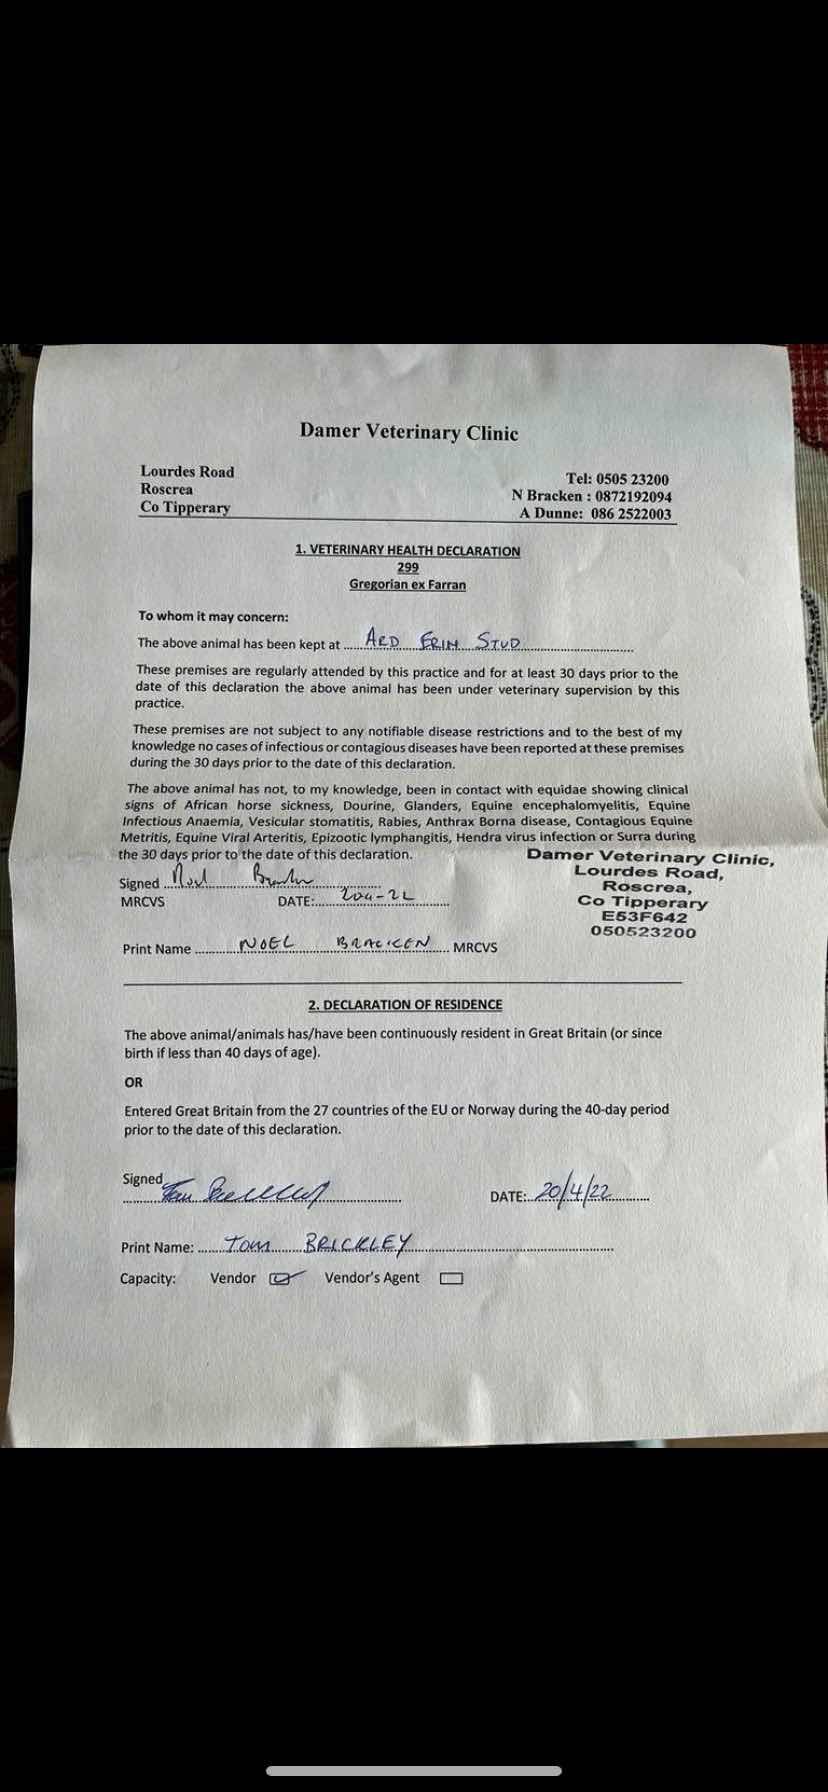 Damer Veterinary Clinic
Lourdes Road
Roscrea
Co Tipperary
Tel: 0505 23200
N Bracken : 0872192094
A Dunne: 086 2522003
1. VETERINARY HEALTH DECLARATION
299
Gregorian ex Farran
To whom it may concern:
The above animal has been kept at ARD ERIN STUD
These premises are regularly attended by this practice and for at least 30 days prior to the
date of this declaration the above animal has been under veterinary supervision by this
practice.
These premises are not subject to any notifiable disease restrictions and to the best of my
knowledge no cases of infectious or contagious diseases have been reported at these premises
during the 30 days prior to the date of this declaration.
The above animal has not, to my knowledge, been in contact with equidae showing clinical
signs of African horse sickness, Dourine, Glanders, Equine encephalomyelitis, Equine
Infectious Anaemia, Vesicular stomatitis, Rabies, Anthrax Borna disease, Contagious Equine
Metritis, Equine Viral Arteritis, Epizootic lymphangitis, Hendra virus infection or Surra during
the 30 days prior to the date of this declaration.
Damer Veterinary Clinic,
Lourdes Road,
Roscrea,
Co Tipperary
E53F642
050523200
Signed Noel Bracken
MRCVS DATE:
Print Name NOEL BRACKEN MRCVS
2. DECLARATION OF RESIDENCE
The above animal/animals has/have been continuously resident in Great Britain (or since
birth if less than 40 days of age).
OR
Entered Great Britain from the 27 countries of the EU or Norway during the 40-day period
prior to the date of this declaration.
Signed Tom Brickley DATE: 20/4/22
Print Name: TOM BRICKLEY
Capacity: Vendor Vendor's Agent